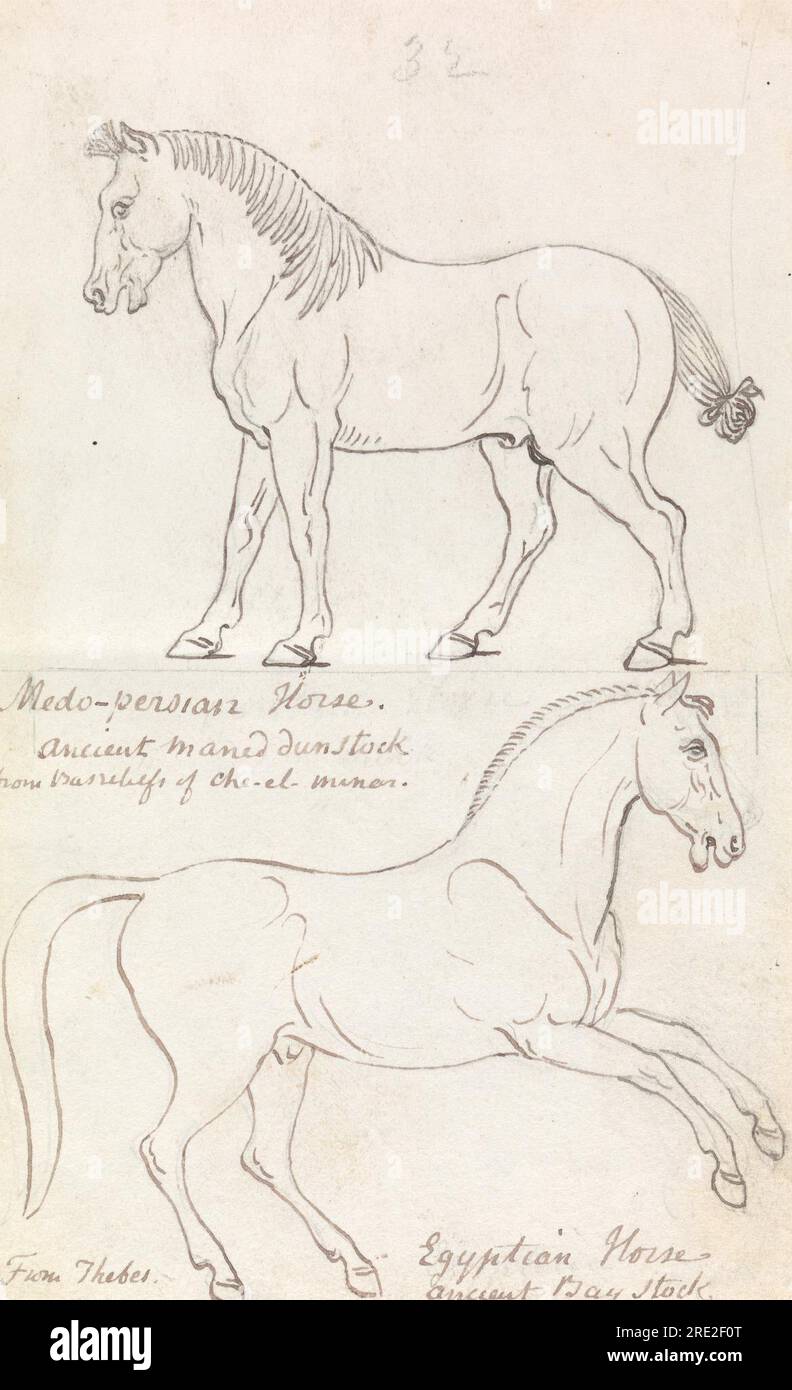 32
Medo-persian Horse.
ancient maned dun stock
from Basreliefs of Che-el-minar.
From Thebes.
Egyptian Horse
ancient Bay stock.
alamy
alamy
alamy
alamy
alamy
Image ID: 2RE2F0T
www.alamy.com